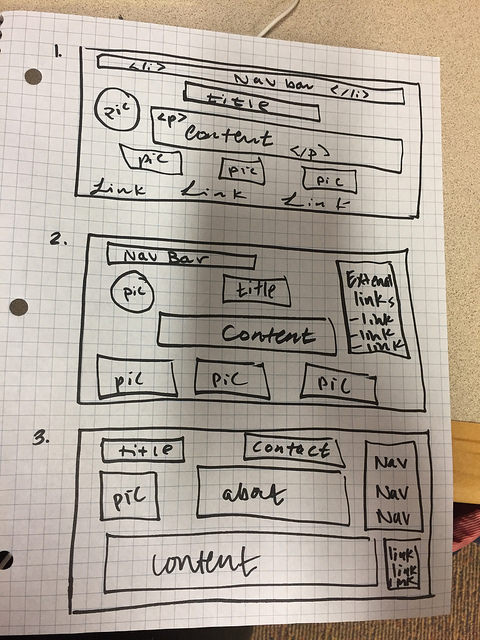 1.
<li> Nav bar </li>
title
pic
<p> Content </p>
pic pic pic
Link Link Link
2.
Nav Bar
pic title
Extend
links
-link
-link
-link
Content
pic pic pic
3.
title contact
Nav
Nav
Nav
pic about
content
link
link
link